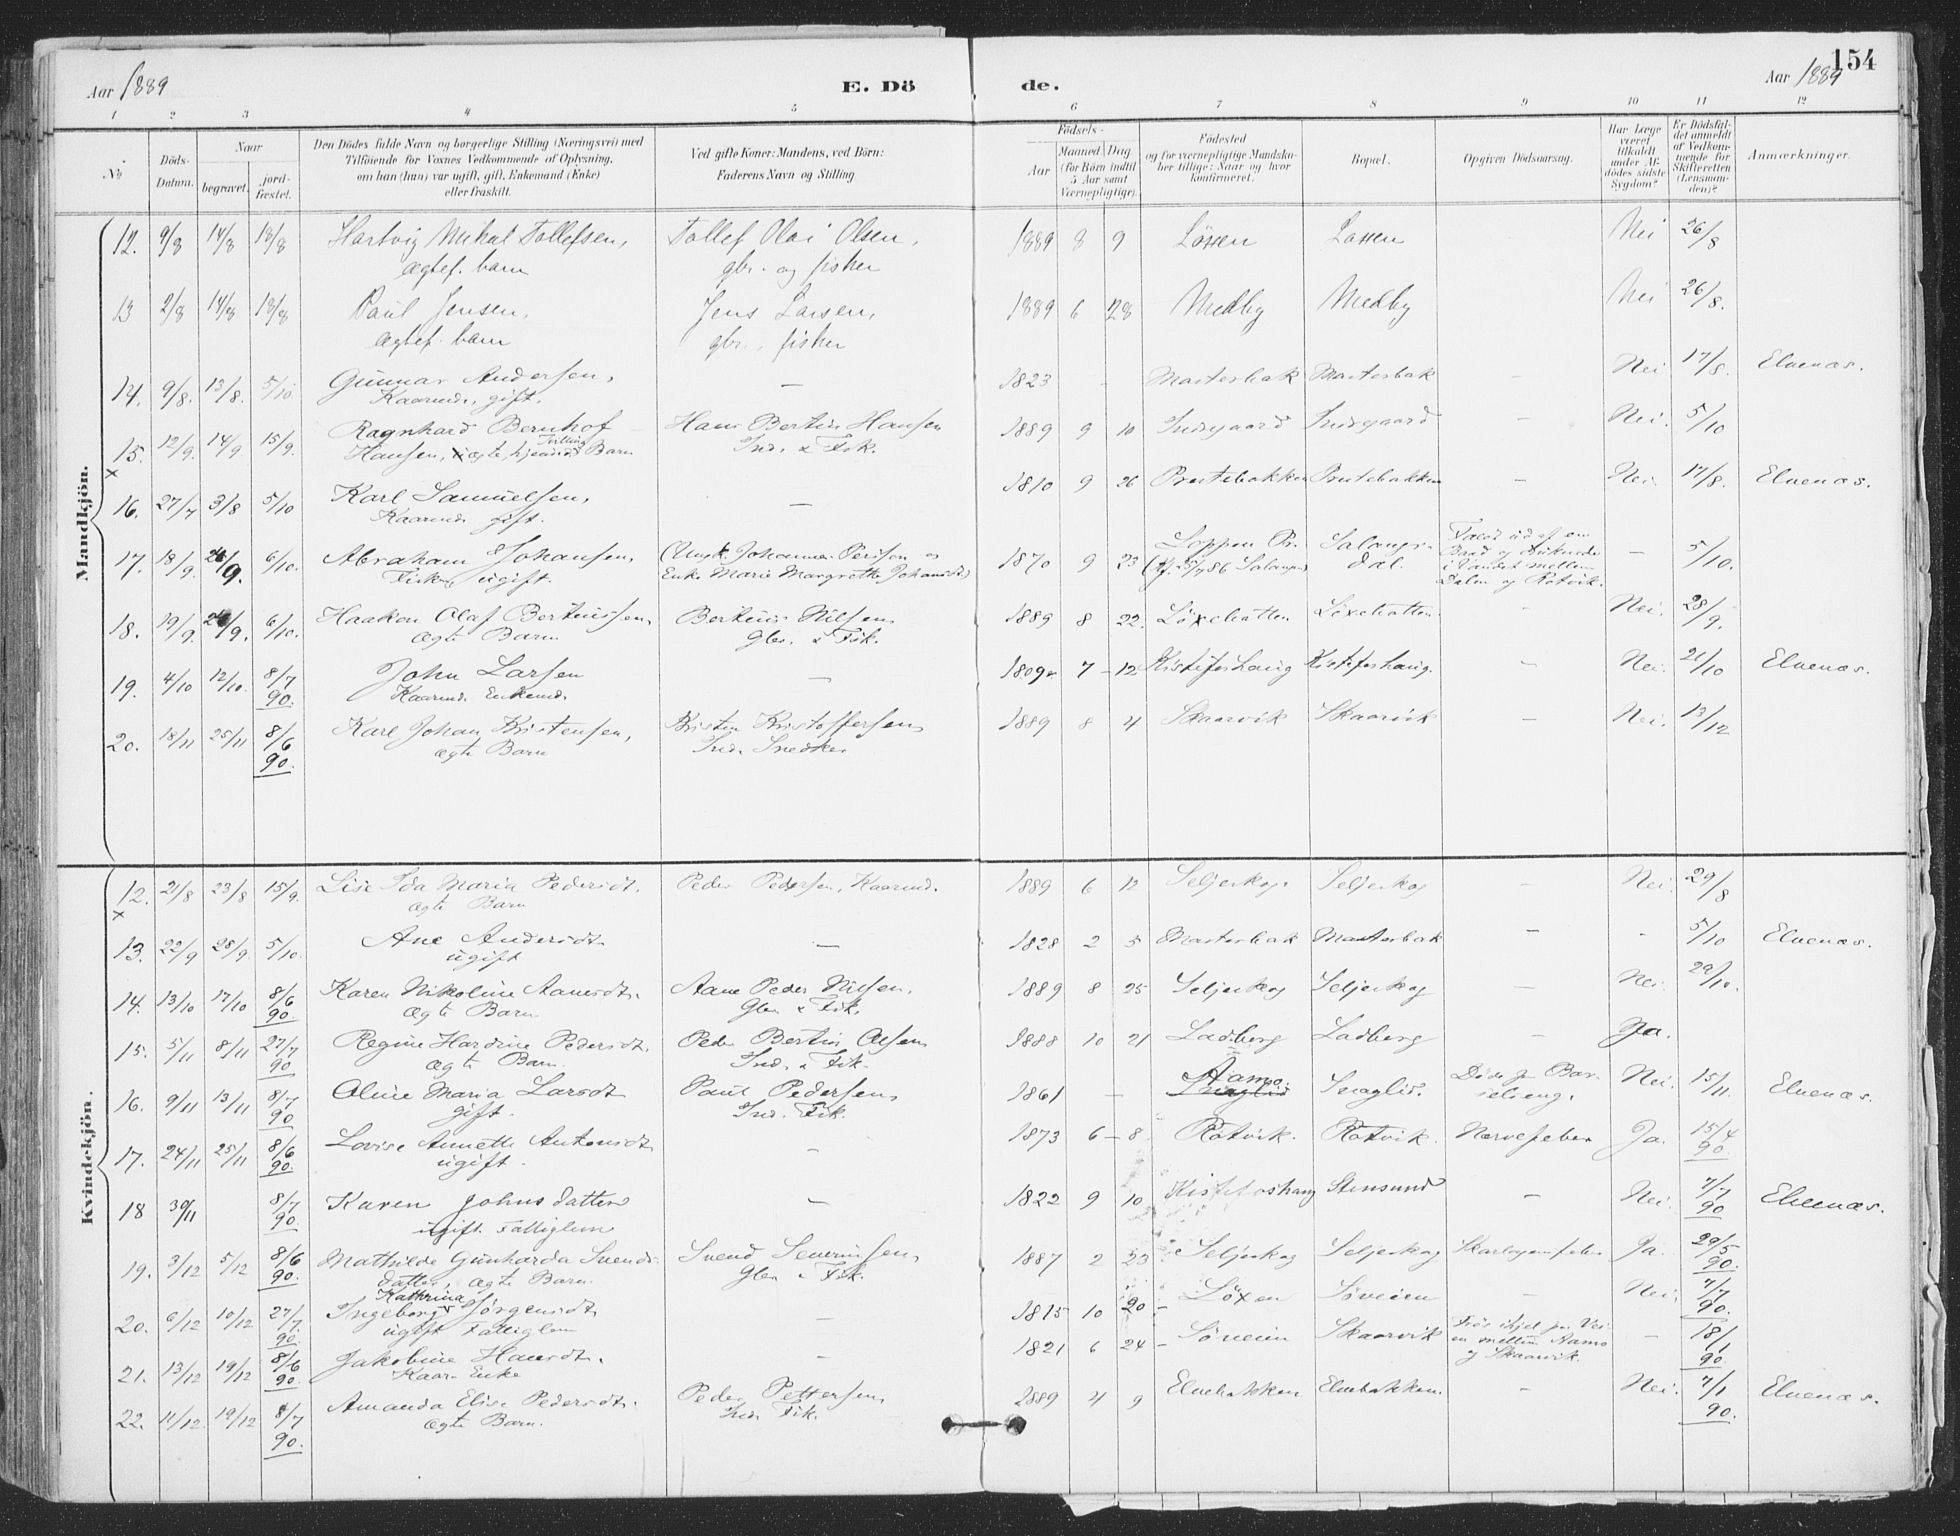 154
Aar 1889
E. Dö
de.
Aar 1889
1 2 3 4 5 6 7 8 9 10 11 12
No
Döds-Datum.
Naar
begravet.
jord-fæstet.
Den Dödes fulde Navn og borgerlige Stilling (Næringsvei) med
Tilföiende for Voxnes Vedkommende af Oplysning,
om han (hun) var ugift, gift, Enkemand (Enke)
eller fraskilt.
Ved gifte Koner: Mandens, ved Börn:
Faderens Navn og Stilling
Födsels-
Aar
Maaned Dag
(for Börn indtil
5 Aar samt
Værnepligtige).
Födested
og for værnepligtige Mandskaber tillige: Naar og hvor
konfirmeret.
Bopæl.
Opgiven Dödsaarsag.
Har Læge
været
tilkaldt
under Afdödes sidste
Sygdom?
Er Dödsfaldet anmeldt
af Vedkommende for
Skifteretten
(Lensmanden)?
Anmærkninger.
Mandkjön.
12. 9/8 14/8 18/8 Hartvig Mikal Tollefsen, Tollef Olai Olsen, 1889 8 9 Løxen Løxen Nei 26/8
ægtef. barn gbr. og fisker
13 2/8 14/8 18/8 Paul Jensen, Jens Larsen, 1889 6 28 Medby Medby Nei 26/8.
ægtef. barn gbr., fisker
14. 9/8. 13/8. 5/10 Gunnar Andersen, — 1823 - - Masterbak Masterbak — Nei 17/8. Elvenæs.
Kaarmd., gift.
15. 12/9. 14/9 15/9. Ragnhard Bernhof Hans Bertin Hansen 1889 9 10 Indgaard Indgaard — Nei. 5/10
× Hansen, ægte, hjemdt. Tvilling Barn Ind. & Fisk.
16. 27/7 3/8 5/10 Karl Samuelsen, — 1810 9 26 Prestebakken Prestebakken — Nei. 17/8. Elvenæs.
Kaarmd. gift.
17. 18/9. 9. 6/10. Abraham Johansen, 1870 9 23 Loppen Pr. Salangsdal. — 5/10.
Fisker, ugift. Enke Marie Margrethe Johansdt) Salangen)
i Vandet mellem
Dalen og Rotvik.
18. 19/9. 9. 6/10. Haakon Olaf Bertinussen, Bertinus Nilsen 1889 8 22. Løxebatten Løxebatten. — Nei. 28/9.
ægte Barn Gbr. & Fisk.
19. 4/10 12/10. 8/7 90. John Larsen — 1809 7 12 Kistefoshaug Kistefoshaug. — Nei. 21/10 Elvenæs.
Kaarmd. Enkemd.
20. 18/11 25/11 8/6 90. Karl Johan Kristensen, Kristen Kristoffersen 1889 8 4 Skaarvik Skaarvik — Nei. 13/12
ægte Barn Ind. Snedker
Kvindekjön.
12. 21/8 23/8 15/9. Lise Ida Maria Pedersdt. Peder Pedersen, Kaarmd. 1889 6 12 Seljeskog Seljeskog — Nei. 29/8
× ægte Barn
13. 22/9 28/9. 5/10. Ane Andersdt. — 1828 2 5 Masterbak Masterbak — - 5/10 Elvenæs.
ugift
14. 13/10 17/10 8/6 90. Karen Nikoline Aanesdt. Aane Peder Nilsen, 1889 8 25 Seljeskog Seljeskog — Nei. 29/10.
ægte Barn Gbr. & Fisk.
15. 5/11 8/11 27/7 90 Regine Hardine Pedersdt. Peder Bertin Olsen 1888 10 21 Ladberg Ladberg — Ja.
ægte Barn. Ind. & Fisk.
16. 9/11 13/11 8/7 90 Oline Maria Larsdt Paul Pedersen 1861 — Aamo. Snaglid. Døde i Barselseng. Nei. 15/11. Elvenæs.
gift. Ind. Fisk.
17. 24/11 25/11 8/6 90. Lovise Annette Antonsdt — 1873 6 8 Rotvik. Rotvik. Nervefeber Ja. 15/4 90.
ugift.
18 30/11 8/7 90. Karen Johnsdatter — 1822 9 10 Kistefoshaug Stensund — Nei. 7/7 90 Elvenæs.
ugift Fattiglem
19. 3/12 5/12 8/6 90. Mathilde Gunharda Svends- Svend Severinsen 1887 2 23 Seljeskog Seljeskog Skarlagensfeber Ja. 29/5 90.
datter, ægte Barn. Gbr. & Fisk.
20. 6/12 10/12 27/7 90. Ingeborg Kathrina Jørgensdt. — 1815 10 20 Løxen Søveien — Nei. 7/7 90.
ugift Fattiglem
21. 13/12 19/12 8/6 90. Jakobine Hansdt. — 1821 6 24 Søveien Skaarvik Frøs ihjel paa Veien mellem Aamo og Skaarvik. — 18/1 90.
Kaar-Enke
22. 11/12. 19/12 8/7 90. Amanda Elise Pedersdt. Peder Pettersen 1889 4 9 Elvebakken Elvebakken. — Nei. 7/1 90. Elvenæs.
ægte Barn. Ind. Fisk.